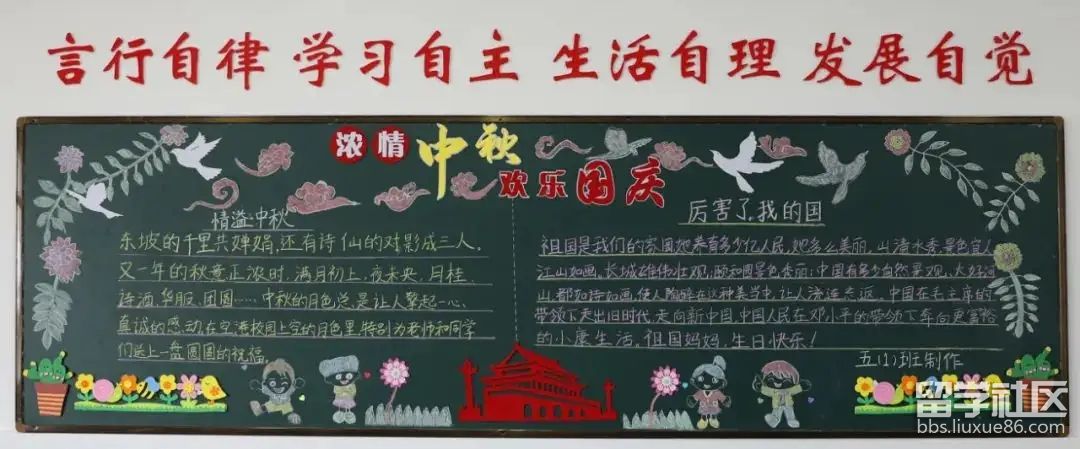 言行自律 学习自主 生活自理 发展自觉
浓情中秋
欢乐国庆
情溢中秋
东坡的千里共婵娟,还有诗仙的对影成三人,
又一年的秋意正浓时,满月初上,夜未央,月桂,
诗酒、华服、团圆……中秋的月色总是让人擎起一心、
真诚的感动在空港校园上空的月色里,特别为老师和同学
们送上一盘圆圆的祝福。
厉害了,我的国
祖国是我们的家园她养育多少亿人民,她多么美丽。山清水秀景色宜人
江山如画,长城雄伟壮观;颐和园景色秀丽;中国有多少自然景观、大好河
山,都如诗如画,使人陶醉在这种美当中,让人流连忘返。中国在毛主席的
带领下走出旧时代,走向新中国,中国人民在邓小平的带领下奔向更富裕
的小康生活,祖国妈妈,生日快乐!
五(1)班制作
留学社区
bbs.liuxue86.com